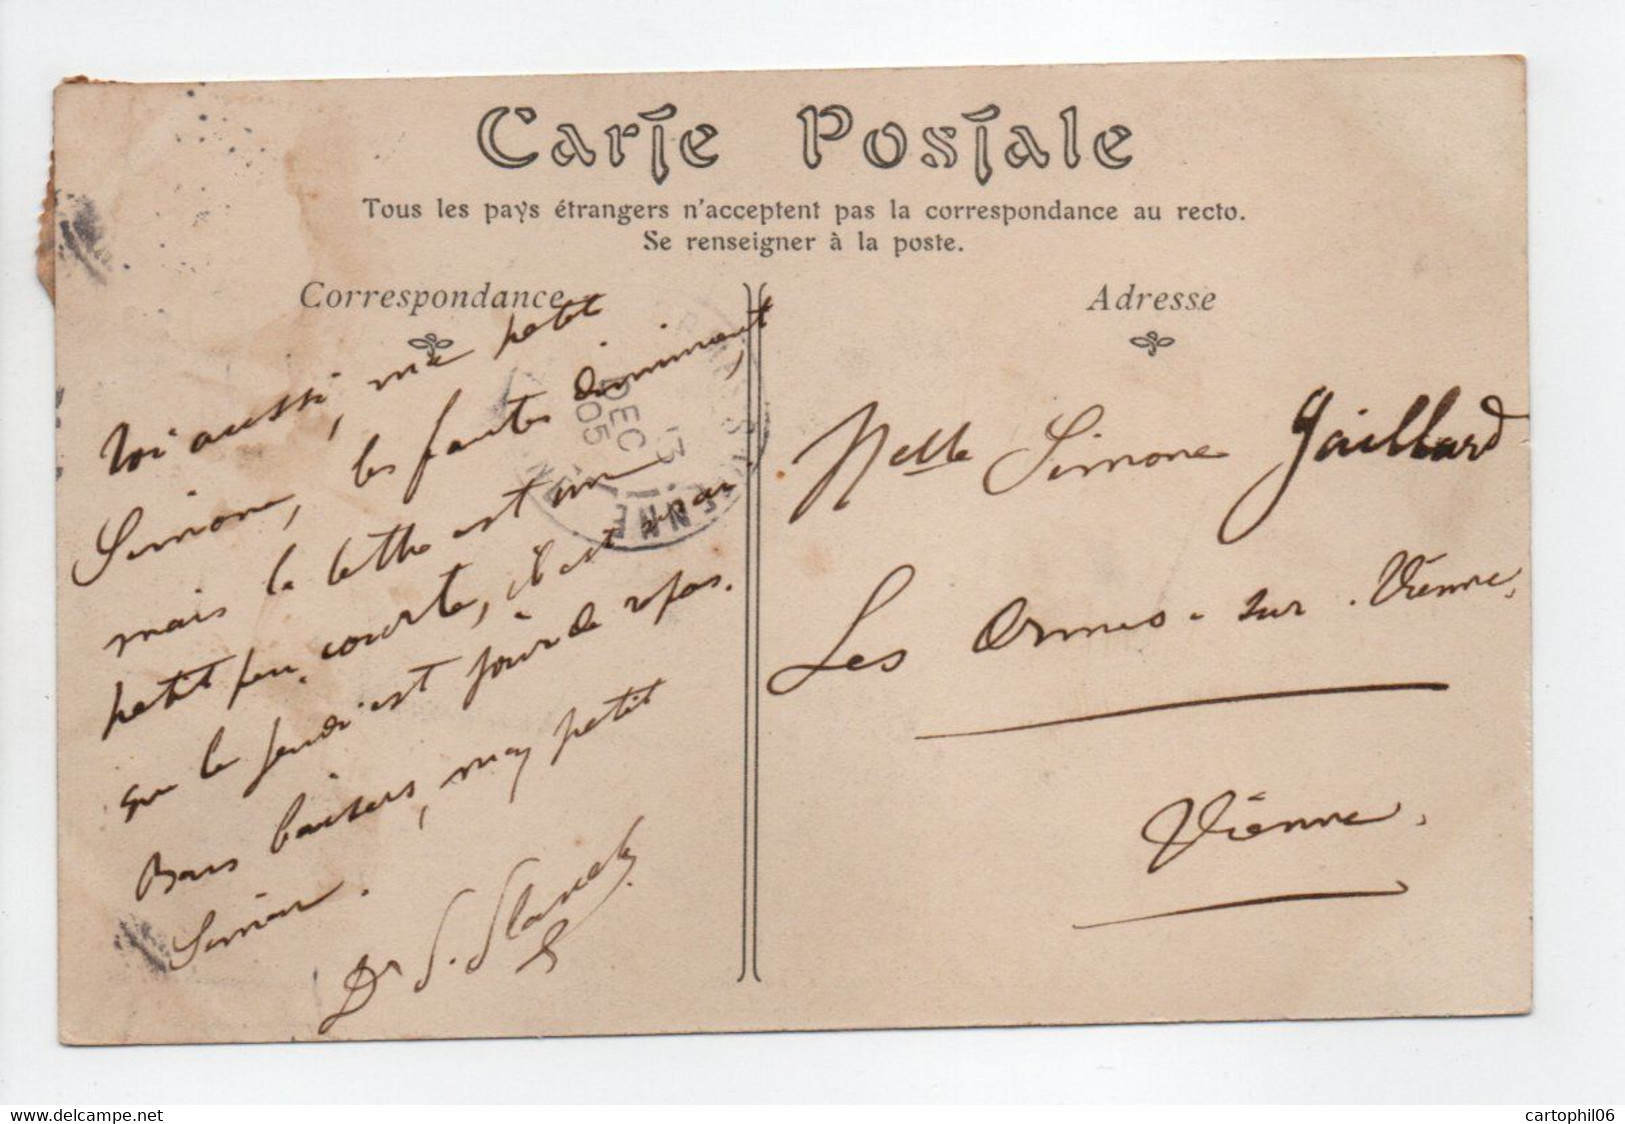 Carte Postale
Tous les pays étrangers n'acceptent pas la correspondance au recto.
Se renseigner à la poste.
Correspondance
Adresse
Toi aussi, ma petite
Simone, les fautes diminuent,
mais la lettre est un
petit peu courte, il est vrai
que le jeudi est jour de repos.
Bons baisers, ma petite
Simone.
Dr S.
Melle Simone Gaillard
Les Ormes-sur-Vienne,
Vienne.
13
DEC
05
VIENNE
www.delcampe.net
cartophil06